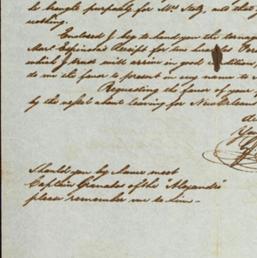 to be bought purposely for Mrs. Stutz, and that
nothing.
Enclosed I beg to hand you the
Mart Espinola's Receipt for two hundred
which I trust will arrive in good condition,
do me the favor to present in my name to
Requesting the favor of your
by the vessel about leaving for New Orleans
Should you by chance meet
Captain Granados of the "Alexandre"
please remember me to him -